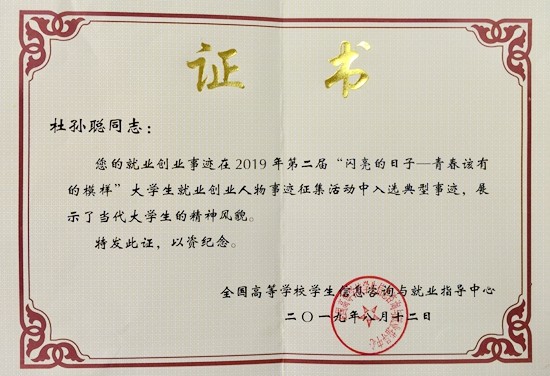 证书
杜孙聪同志：
您的就业创业事迹在2019年第二届“闪亮的日子—青春该有
的模样”大学生就业创业人物事迹征集活动中入选典型事迹，展
示了当代大学生的精神风貌。
特发此证，以资纪念。
全国高等学校学生信息咨询与就业指导中心
二〇一九年八月十二日